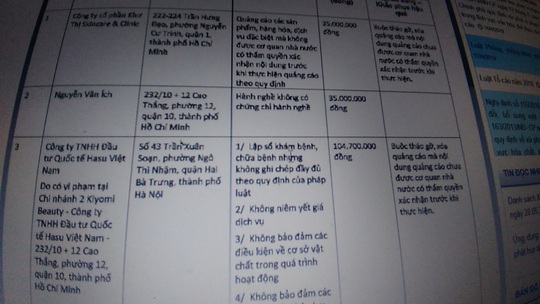 1
Công ty cổ phần Khơ
Thị Skincare & Clinic
222-224 Trần Hưng
Đạo, phường Nguyễn
Cư Trinh, quận 1,
thành phố Hồ Chí
Minh
Quảng cáo các sản
phẩm, hàng hóa, dịch
vụ đặc biệt mà không
được cơ quan nhà nước
có thẩm quyền xác
nhận nội dung trước
khi thực hiện quảng cáo
theo quy định
35.000.000
đồng
Khắc phục hậu
quả
Buộc tháo gỡ, xóa
quảng cáo mà nội
dung quảng cáo chưa
được cơ quan nhà
nước có thẩm quyền
xác nhận trước khi
thực hiện.
2
Nguyễn Văn Ích
232/10 + 12 Cao
Thắng, phường 12,
quận 10, thành phố
Hồ Chí Minh
Hành nghề không có
chứng chỉ hành nghề
35.000.000
đồng
3
Công ty TNHH Đầu
tư Quốc tế Hasu Việt
Nam
Do có vi phạm tại
Chi nhánh 2 Kiyomi
Beauty - Công ty
TNHH Đầu tư Quốc
tế Hasu Việt Nam -
232/10 + 12 Cao
Thắng, phường 12,
quận 10, thành phố
Hồ Chí Minh
Số 43 Trần Xuân
Soạn, phường Ngô
Thì Nhậm, quận Hai
Bà Trưng, thành phố
Hà Nội
1/ Lập sổ khám bệnh,
chữa bệnh nhưng
không ghi chép đầy đủ
theo quy định của pháp
luật
2/ Không niêm yết giá
dịch vụ
3/ Không bảo đảm các
điều kiện về cơ sở vật
chất trong quá trình
hoạt động
4/ Không bảo đảm các
104,700.000
đồng
Buộc tháo gỡ, xóa
quảng cáo mà nội
dung quảng cáo chưa
được cơ quan nhà
nước có thẩm quyền
xác nhận trước khi
thực hiện.
TIN ĐỌC